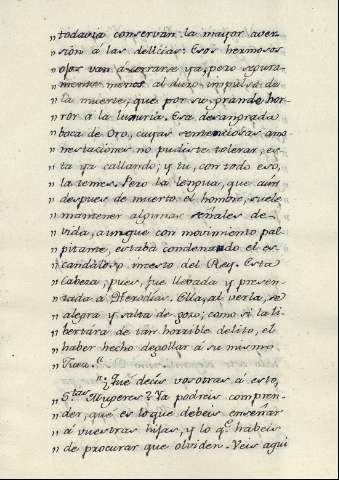 „ todavia conservan la mayor aver-
„ sion á las delicias: Esos hermosos
„ ojos van á serrarse ya, pero segura-
„ mente menos al duro impulso de
„ la muerte, que por su grande hor-
„ ror a la luxuria. Esa desangrada
„ boca de Oro, cuyas sentenciosas amo
„ nestaciones no pudiste tolerar, es-
„ ta ya callando; y tu, con todo eso,
„ la temes. Pero la lengua, que aún
„ despues de muerto el hombre, suele
„ mantener algunas señales de-
„ vida, aunque con movimiento pal-
„ pitante, estaba condenando el es-
„ candaloso incesto del Rey. Esta
„ Cabeza, pues, fue llevada y presen-
„ tada a Herodías. Ella, al verla, se
„ alegra y salta de gozo; como si la li-
„ bertára de tan horrible delito, el
„ haber hecho degollar á su mismo
„
„ ¿Que decis vosotras á esto,
„ Stas Mugeres? Ya podreis compren-
„ der, que es lo que debeis enseñar
„ á vuestras hijas, y lo q.e habeis
„ de procurar que olviden. Veis aqui